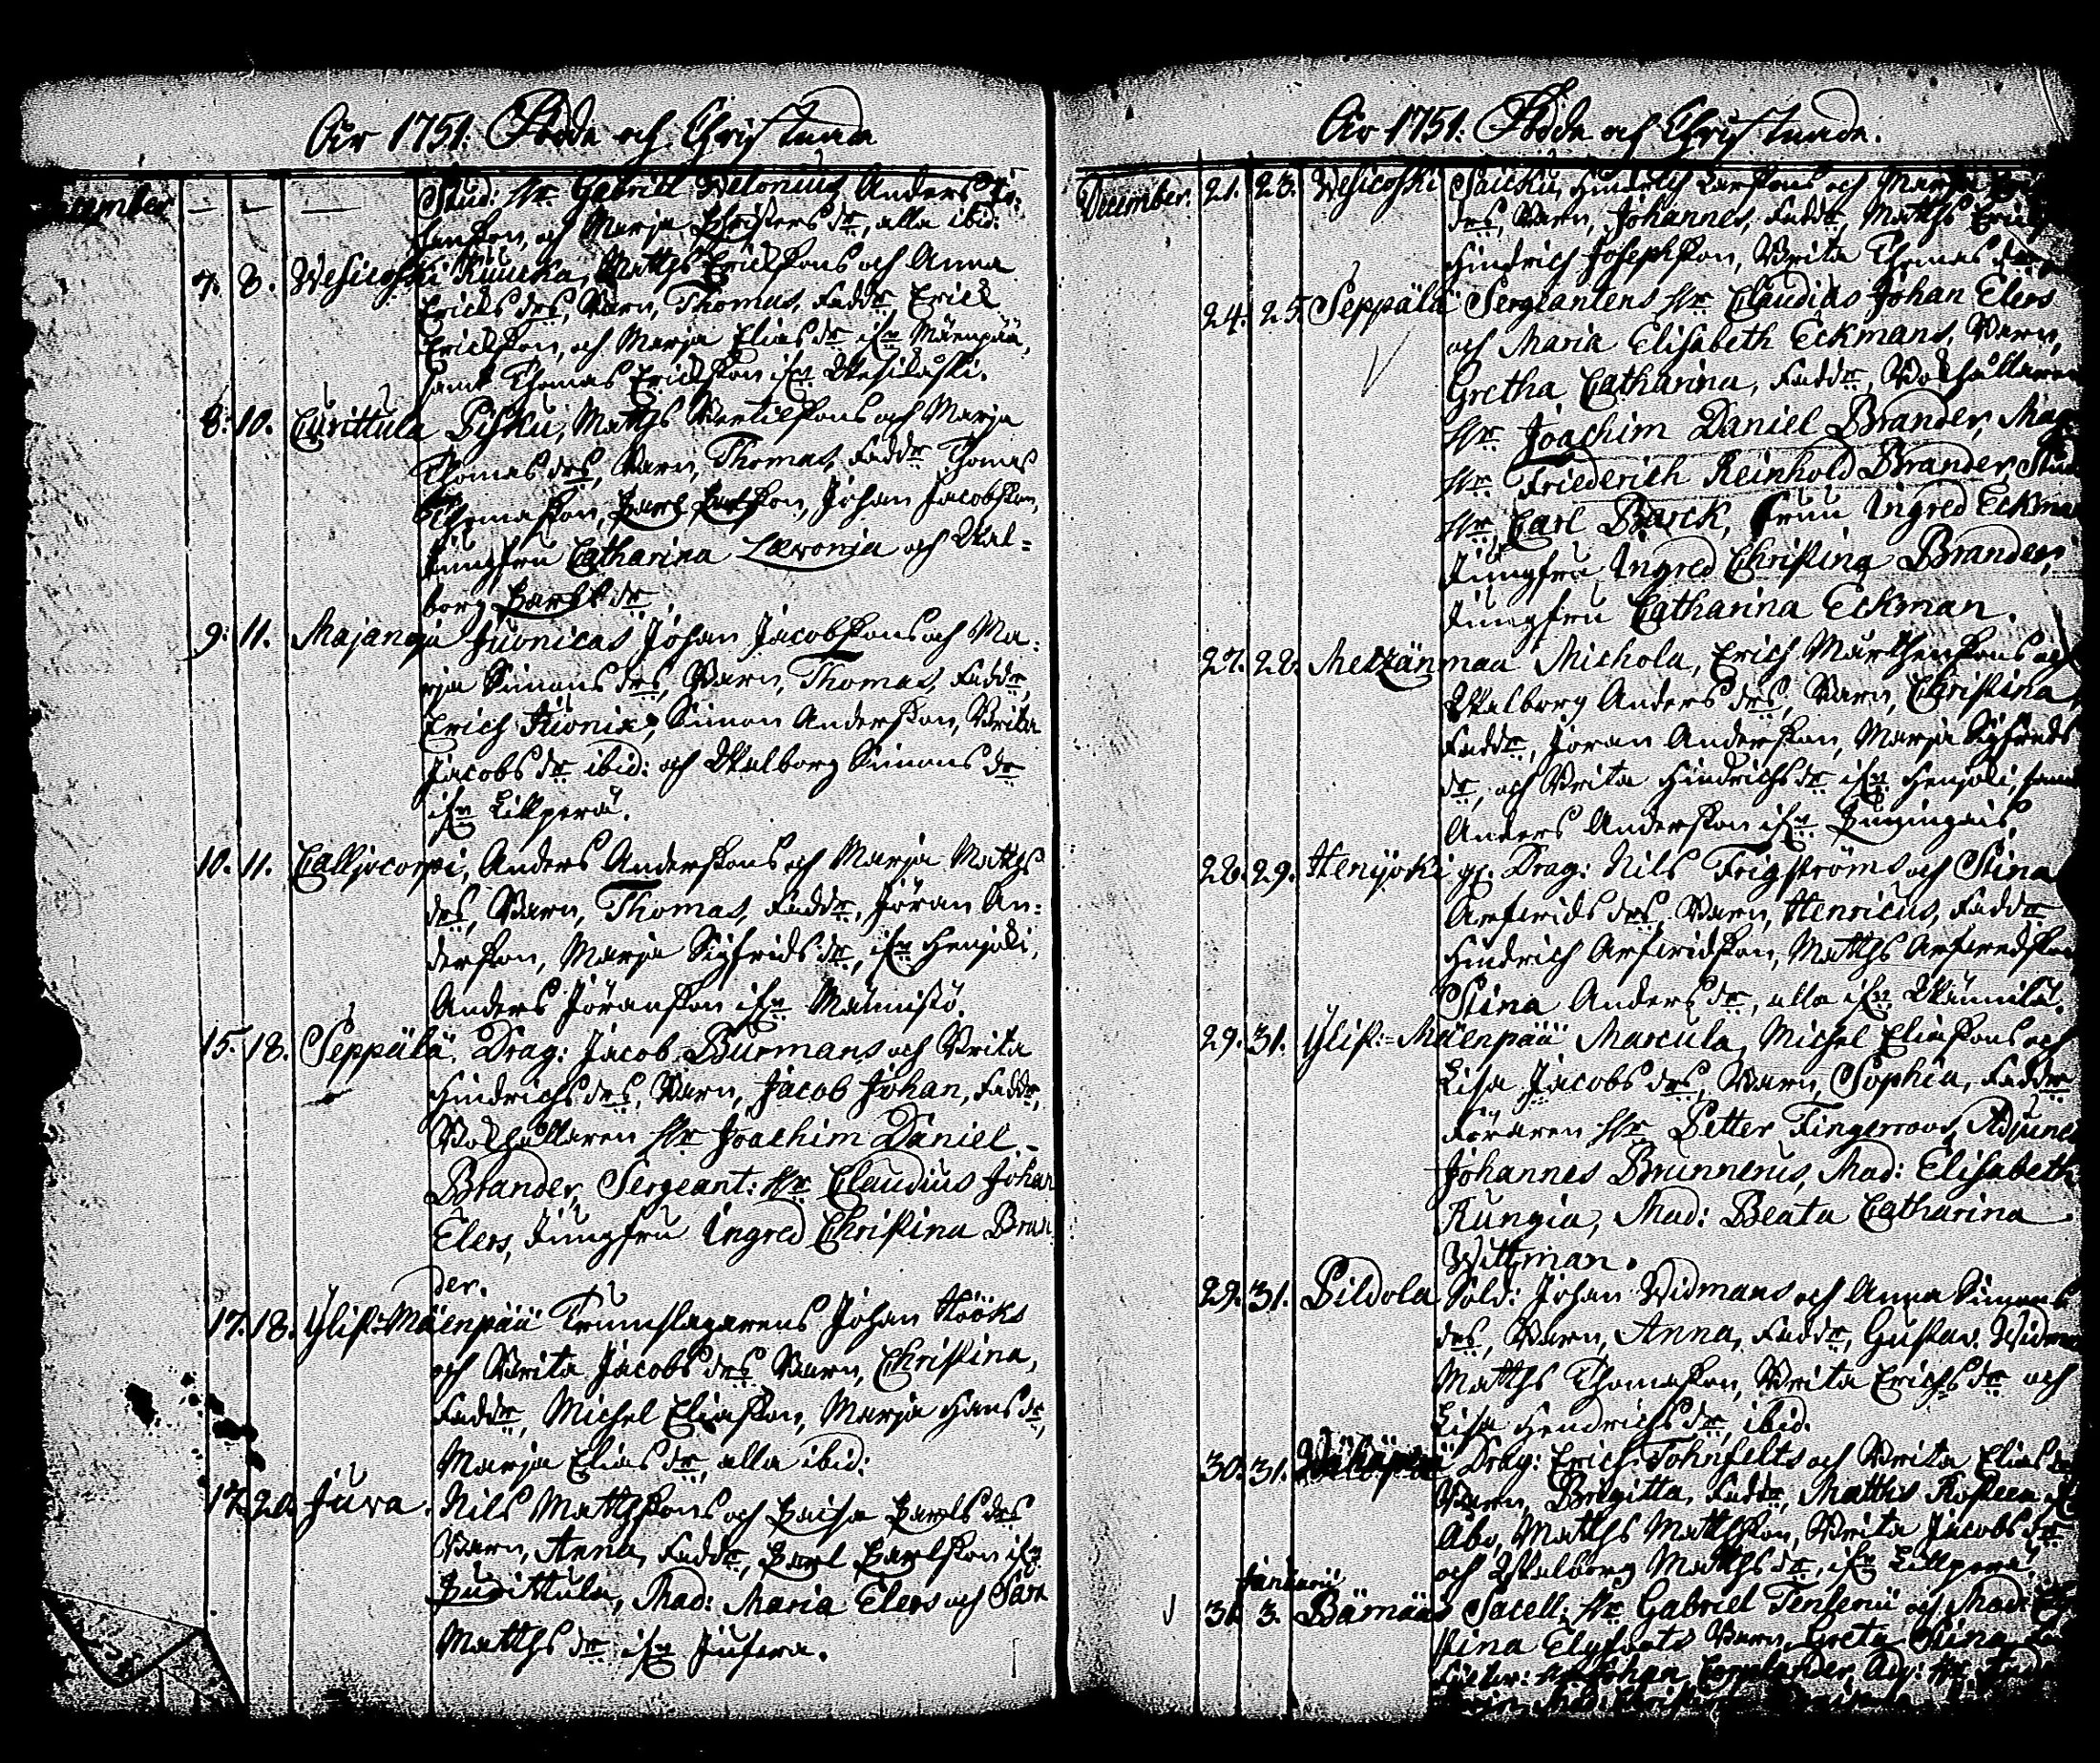 År 1751. Födde och Christnade
Stud: Hr Gabriel Welonius, Anders Jö=
ranson, och Marja Christers dr, alla ibid:
7. 8. Wesicoski Kuucka, Matths Ericksons och Anna
Ericks drs, Barn, Thomas, Faddr Erick
Erickson, och Marja Elias dr ifrn Mäenpää,
samt Thomas Erickson ifrn Wesikoski.
8. 10. Curittula Pisku, Matths Bertilsons och Marja
Thomas drs, Barn, Thomas, Faddr Thomas
Thomason, Carl Carlson, Johan Jacobson,
Jungfru Catharina Lævonia och Wal=
borg Carls dr
9. 11. Majanoja Juonicas Johan Jacobsons och Ma=
rja Simons drs, Barn, Thomas, Faddr,
Erich Simon Anderson, Brita
Jacobs dr ibid: och Walborg Simons dr
ifrn Lillperä.
10. 11. Calljocorpi, Anders Andersons och Marja Matths
drs, Barn, Thomas, Faddr, Jöran An=
derson, Marja Sigfrids dr, ifrn Henjoki,
Anders Jöranson ifrn Männistö.
15. 18. Seppälä. Drag: Jacob Burmans och Brita
Hindrichs drs, Barn, Jacob Johan, Faddr,
Bokhållaren Hr Joachim Daniel
Brander, Sergeant: Hr Claudius Johan
Elers, Jungfru Ingred Christina Bran
der.
17. 18. Ylis=Mäenpää Trumslagarens Johan Hööks
och Brita Jacobs drs Barn, Christina,
Faddr, Michel Eliason, Marja Hans dr,
Marja Elias dr, alla ibid:
17. 20. Juva. Nils Matthsons och Caisa Carls drs
Barn, Anna, Faddr, Carl Carlson ifrn
Curittula, Mad: Maria Elers och Sara
Matths dr ifrn Jufva.
År 1751: Födde och Christnade.
December. 21. 23. Wesicoski Saicku, Hindrich Larsons och Marja
drs, Barn, Johannes, Faddr, Matths
Hindrich Josephson, Brita Thomas dr
24. 25. Seppälä Sergeantens Hr Claudius Johan Elers
och Maria Elisabeth Eckmans, Barn,
Gretha Catharina, Faddr, Bokhållaren
Hr Joachim Daniel Brander, Mag
Hr Friederich Reinhold Brander, Stud
Hr Carl Barck, Fruu Ingred Eckma
Jungfru Ingred Christina Brander,
Jungfru Catharina Eckman.
27. 28. Metzänmaa Michola, Erich Mårthensons och
Walborg Anders drs, Barn, Christina,
Faddr, Jöran Anderson, Marja Sigfrids
dr, och Brita Hindrichs dr ifrn Henjoki, samt
Anders Anderson ifrn
28. 29. Henijoki Drag: Nils Frigströms och Stina
Arfwids drs, Barn, Henricus, Faddr
Hindrich Arfwidson, Matths Arfwedson
Stina Anders dr, alla ifrn Wännilä.
29. 31. Ylis=Mäenpää Marcula, Michel Eliasons och
Lisa Jacobs drs, Barn, Sophia, Faddr
Föraren Hr Petter Fingerroos, Adjunct
Johannes Brunnerus, Mad: Elisabeth
Rungia, Mad: Beata Catharina
Wittman.
29. 31. Pildola Sold: Johan Widmans och Anna Simons
drs, Barn, Anna, Faddr, Gustav. Widm
Matths Thomason, Brita Erichs dr och
Lisa Hendrichs dr, ibid.
30. 31. Drag: Erich Tohnfelts och Brita Elias
Barn, Brigitta, Faddr, Matths
Abo, Matths Matthson, Brita Jacobs dr
och Walborg Matths dr, ifrn Lillperä.
Januarii
31. 3. Sacell: Hr Gabriel Tenlenii och Mad:
stina Barn, Greta Stina
Hr Johan